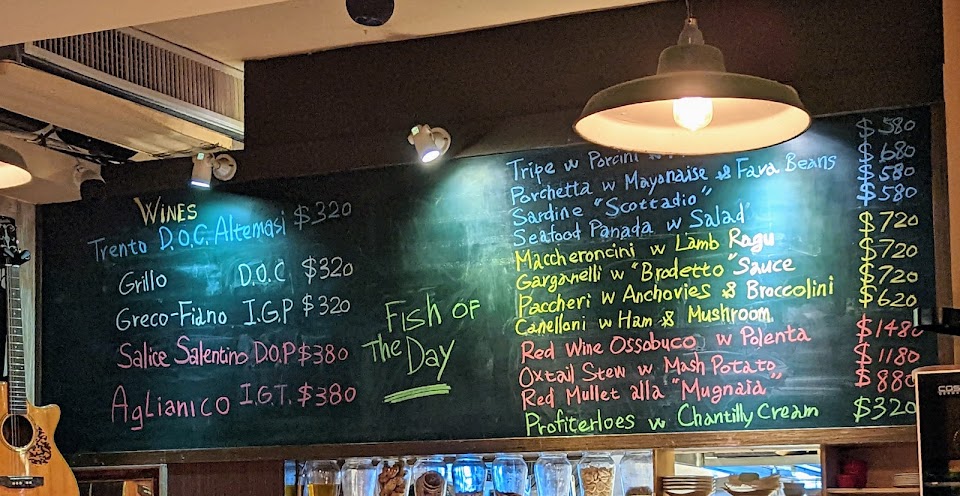 WINES
Trento D.O.C. Altemasi $320
Grillo D.O.C $320
Greco-Fiano I.G.P $320
Salice Salentino D.O.P $380
Aglianico I.G.T. $380
Fish of
The Day
Tripe w Porcini $580
Porchetta w Mayonaise & Fava Beans $680
Sardine "Scottadio" $580
Seafood Panada w Salad $580
Maccheroncini w Lamb Ragu $720
Garganelli w "Brodetto" Sauce $720
Paccheri w Anchovies & Broccolini $720
Canelloni w Ham & Mushroom $620
Red Wine Ossobuco w Polenta $1480
Oxtail Stew w Mash Potato $1180
Red Mullet alla "Mugnaia" $880
Profiterloes w Chantilly Cream $320